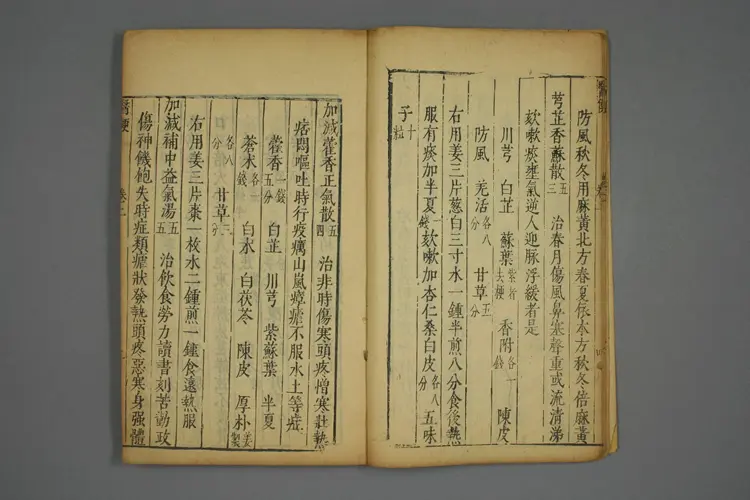 防風秋冬用麻黃北方春夏依本方秋冬倍麻黃
芎芷香蘇散五三 治春月傷風鼻塞聲重或流清涕
欬嗽痰壅氣逆人迎脉浮緩者是
川芎 白芷 蘇葉紫者去梗 香附各一錢 陳皮
防風 羌活各八分 甘草五分
右用姜三片葱白三寸水一鍾半煎八分食後熱
服有痰加半夏一錢欬嗽加杏仁桑白皮各八分 五味
子十粒
加減藿香正氣散五四 治非時傷寒頭疼憎寒壯熱
痞悶嘔吐時行疫癘山嵐瘴瘧不服水土等症
藿香一錢五分 白芷 川芎 紫蘇葉 半夏
蒼朮各一錢 白朮 白茯苓 陳皮 厚朴姜製
各八分 甘草三分
右用姜三片棗一枚水二鍾煎一鍾食遠熱服
加減補中益氣湯五五 治飲食勞力讀書刻苦勤政
傷神饑飽失時症類瘧狀發熱頭疼惡寒身强體
卷二